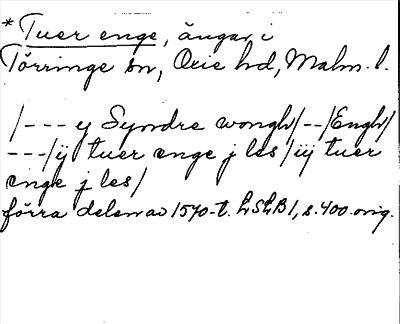 *Tuer enge, ängar, i
Törringe sn, Oxie hd, Malm. l.
/--- y Syndre wongh/--/Engh/
---/ij tuer enge j les/iij tuer
enge j les/
förra delen av 1570-t. LSLB 1, s. 400. orig.